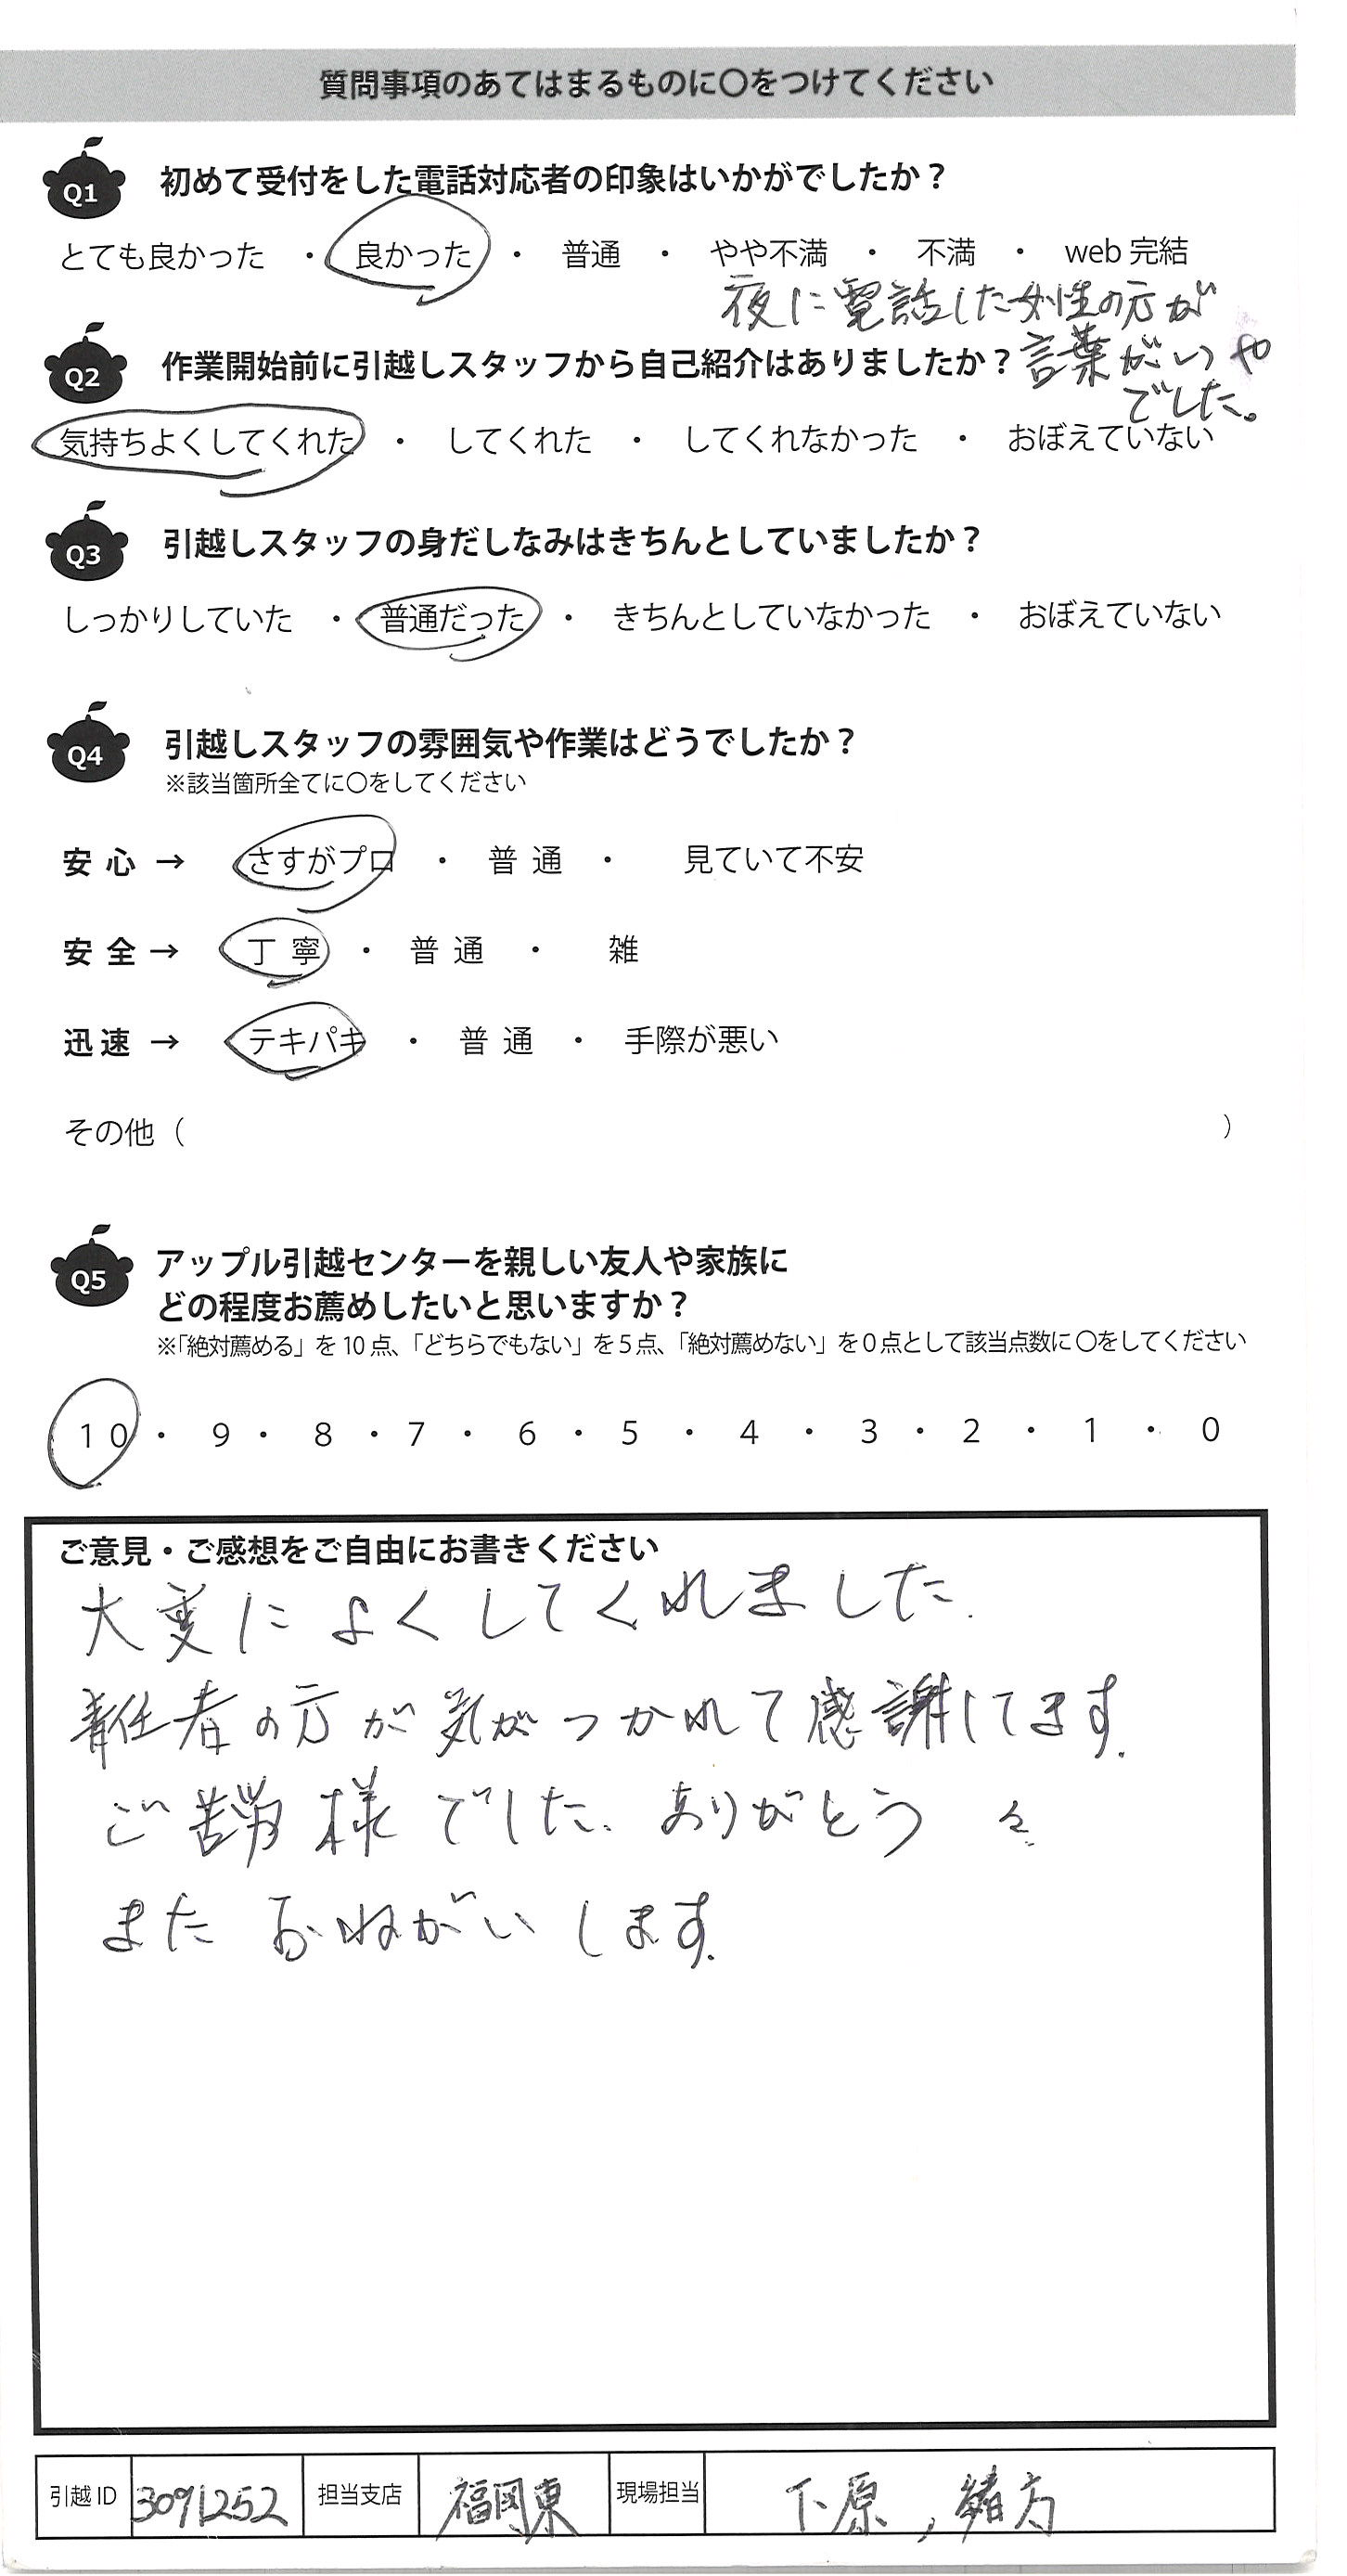 質問事項のあてはまるものに〇をつけてください
Q1 初めて受付をした電話対応者の印象はいかがでしたか？
とても良かった ・ 良かった ・ 普通 ・ やや不満 ・ 不満 ・ web完結
夜に電話した女性の方が
言葉がいや
でした。
Q2 作業開始前に引越しスタッフから自己紹介はありましたか？
気持ちよくしてくれた ・ してくれた ・ してくれなかった ・ おぼえていない
Q3 引越しスタッフの身だしなみはきちんとしていましたか？
しっかりしていた ・ 普通だった ・ きちんとしていなかった ・ おぼえていない
Q4 引越しスタッフの雰囲気や作業はどうでしたか？
※該当箇所全てに〇をしてください
安心 → さすがプロ ・ 普通 ・ 見ていて不安
安全 → 丁寧 ・ 普通 ・ 雑
迅速 → テキパキ ・ 普通 ・ 手際が悪い
その他（ ）
Q5 アップル引越センターを親しい友人や家族に
どの程度お薦めしたいと思いますか？
※「絶対薦める」を10点、「どちらでもない」を5点、「絶対薦めない」を0点として該当点数に〇をしてください
10 ・ 9 ・ 8 ・ 7 ・ 6 ・ 5 ・ 4 ・ 3 ・ 2 ・ 1 ・ 0
ご意見・ご感想をご自由にお書きください
大変によくしてくれました.
責任者の方が気がつかれて感謝してます.
ご苦労様でした. ありがとう 々
また おねがいします.
引越ID 3091252 担当支店 福岡東 現場担当 下原, 緒方